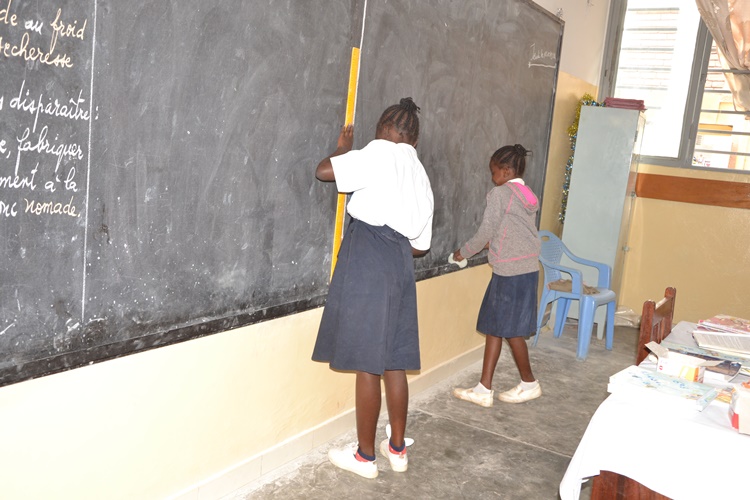 de au froid
secheresse
s disparaître:
e, fabriquer
ment à la
onc nomade.